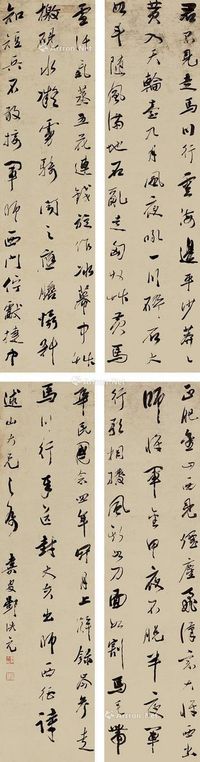 君不見走馬川行雪海邊平沙莽莽
黃入天輪臺九月風夜吼一川碎石大
如斗隨風滿地石亂走匈奴草黃馬
正肥金山西見煙塵飛漢家大將西出
師將軍金甲夜不脫半夜軍
行戈相撥風頭如刀面如割馬毛帶
雪汗氣蒸五花連錢旋作冰幕中草
檄硯水凝虜騎聞之應膽懾料
知短兵不敢接軍師西門佇獻捷中
華民國念四年月上澣錄岑參走
馬川行奉送封大夫出師西征詩
述山六兄之屬